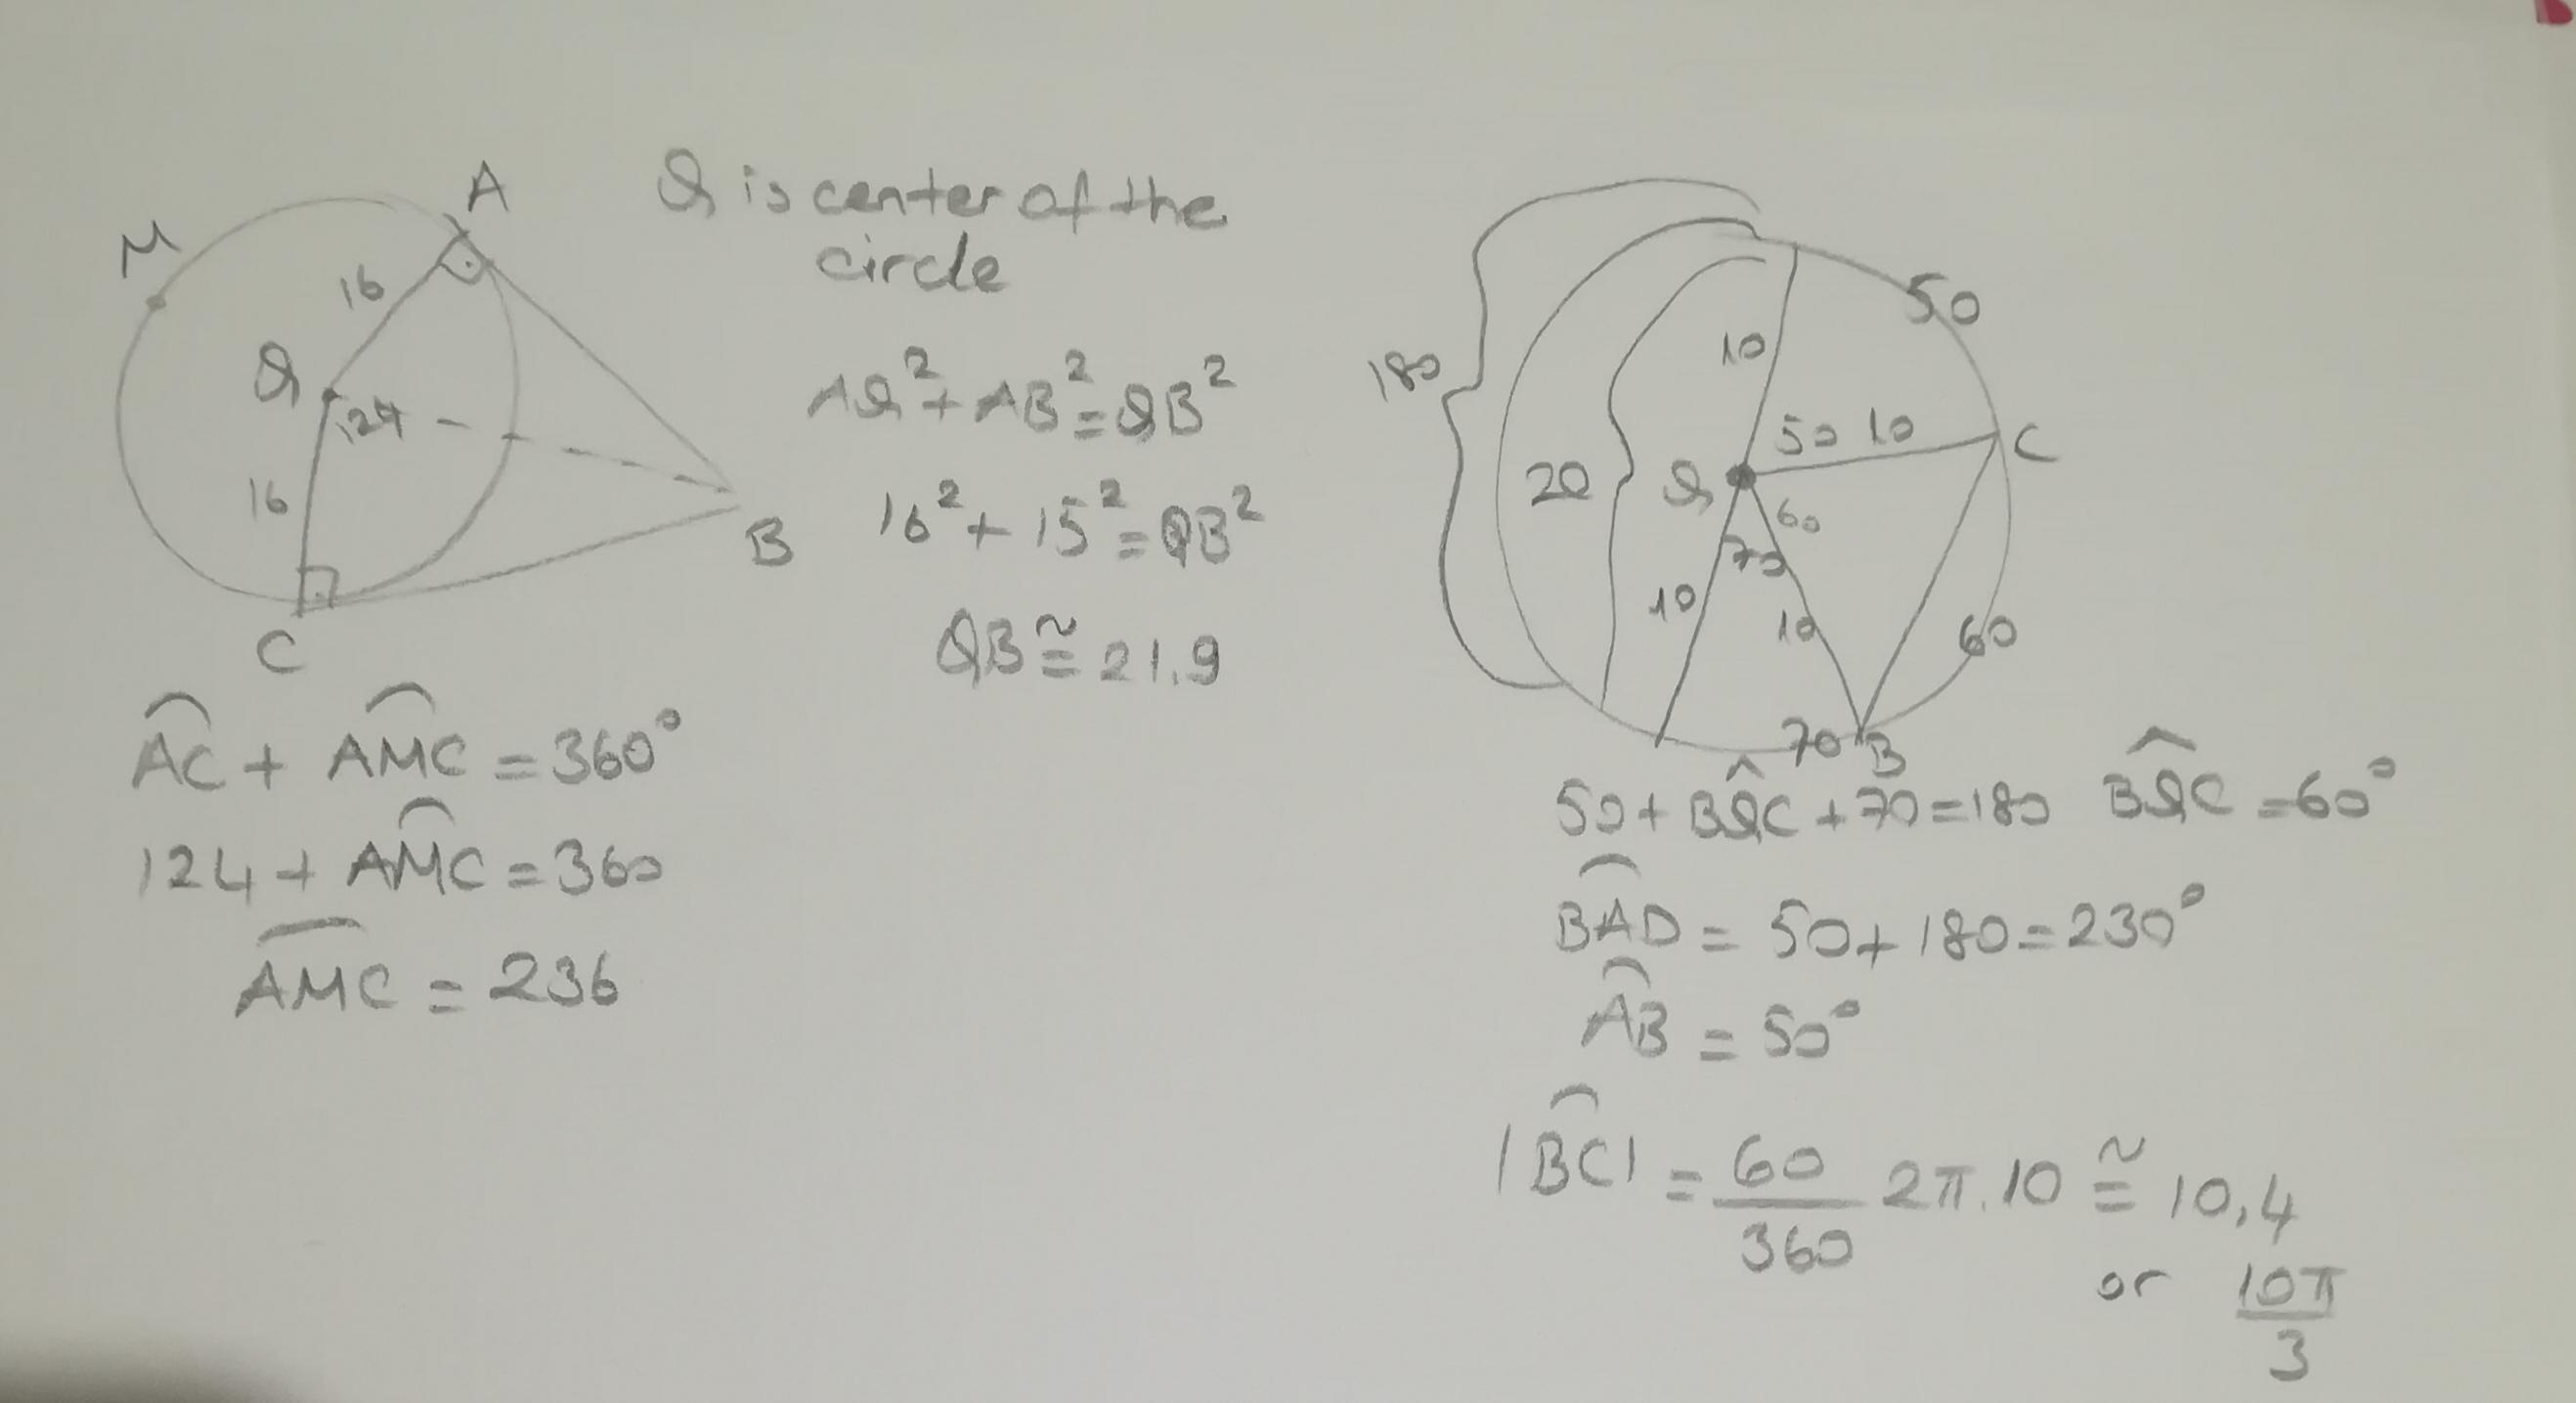 A
M
16
Q
124
16
B
C
Q is center of the
circle
AQ²+AB²=QB²
16²+15²=QB²
QB≅21.9
AC + AMC = 360°
124 + AMC = 360
AMC = 236
180
50
10
50 10
C
20
Q
60
70
10
10
60
70 B
50+BQC+70=180 BQC=60°
BAD = 50+180=230°
AB = 50°
|BC| = 60/360 2π.10 ≅ 10,4
or 10π/3